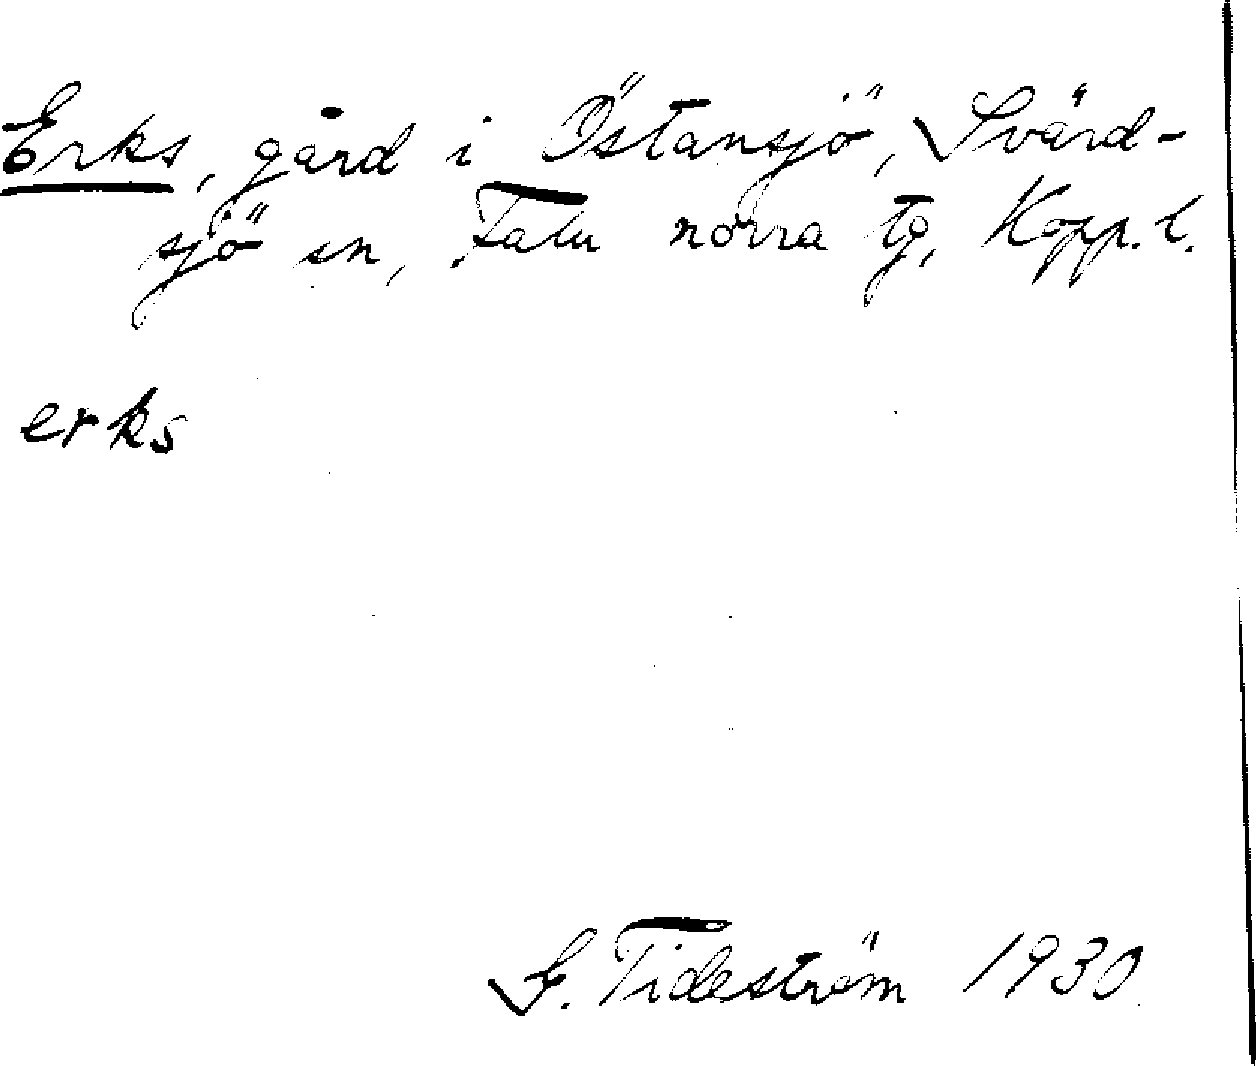 Erks, gård i Östansjö, Svärd-
sjö sn, Falu norra tg, Kopp. l.
erks
G. Tideström 1930